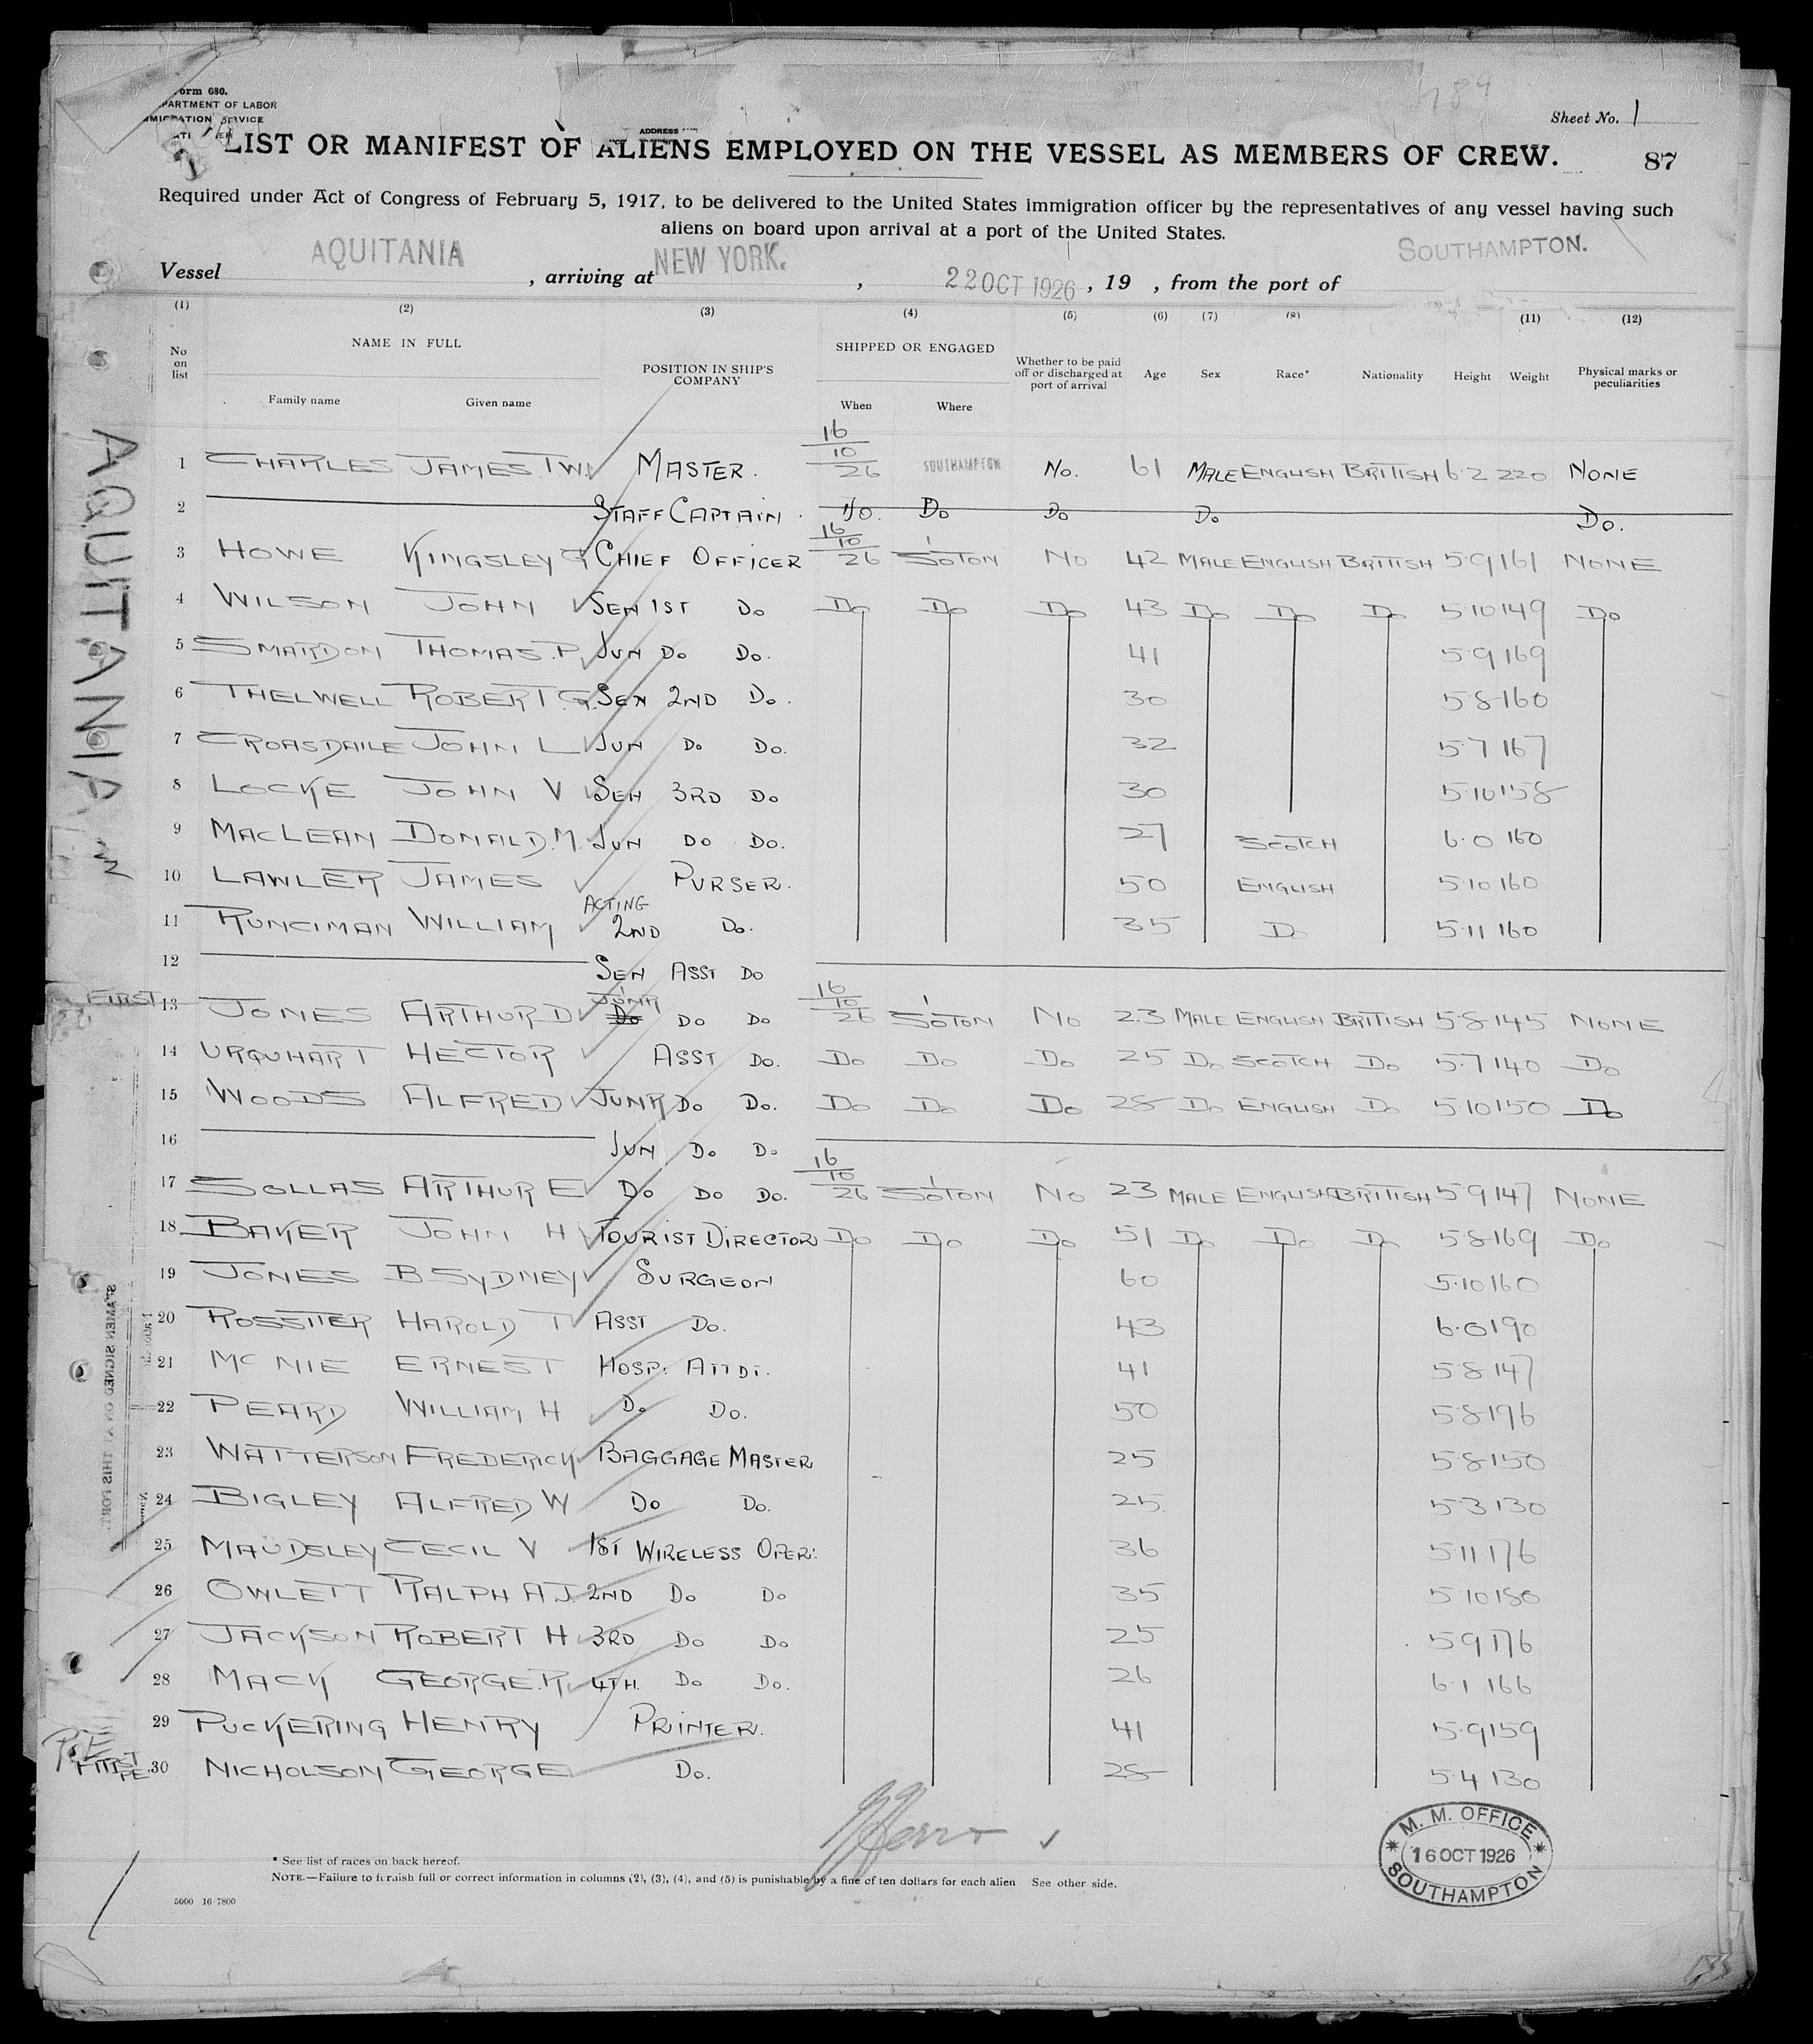 Form 680.
DEPARTMENT OF LABOR
IMMIGRATION SERVICE
ADDRESS
Sheet No. 1
LIST OR MANIFEST OF ALIENS EMPLOYED ON THE VESSEL AS MEMBERS OF CREW.
87
Required under Act of Congress of February 5, 1917, to be delivered to the United States immigration officer by the representatives of any vessel having such
aliens on board upon arrival at a port of the United States.
Vessel AQUITANIA , arriving at NEW YORK. , 22 OCT 1926 , 19 , from the port of SOUTHAMPTON.
(1) (2) (3) (4) (5) (6) (7) (8) (11) (12)
No on list NAME IN FULL POSITION IN SHIP'S COMPANY SHIPPED OR ENGAGED Whether to be paid off or discharged at port of arrival Age Sex Race* Nationality Height Weight Physical marks or peculiarities
Family name Given name When Where
AQUITANIA
1 CHARLES JAMES. T.W. MASTER. 16/10/26 SOUTHAMPTON No. 61 MALE ENGLISH BRITISH 6.2 220 NONE
2 STAFF CAPTAIN. Do. Do Do Do Do.
3 HOWE KINGSLEY G CHIEF OFFICER 16/10/26 S'OTON No 42 MALE ENGLISH BRITISH 5.9 161 NONE
4 WILSON JOHN SEN 1ST Do Do Do Do 43 Do Do Do 5.10 149 Do
5 SMARDON THOMAS. P. JUN Do Do. 41 5.9 169
6 THELWELL ROBERT. G. SEN 2ND Do. 30 5.8 160
7 CROASDAILE JOHN L JUN Do Do. 32 5.7 167
8 LOCKE JOHN V SEN 3RD Do 30 5.10 158
9 MACLEAN DONALD. M. JUN DO DO. 27 SCOTCH 6.0 160
10 LAWLER JAMES PURSER. 50 ENGLISH 5.10 160
11 RUNCIMAN WILLIAM ACTING 2ND Do. 35 Do 5.11 160
12 SEN ASST DO
FIRST 13 JONES ARTHUR. D JUNR Do DO DO 16/10/26 S'OTON No 23 MALE ENGLISH BRITISH 5.8 145 NONE
14 URQUHART HECTOR ASST Do. Do Do Do 25 Do SCOTCH Do 5.7 140 Do
15 WOODS ALFRED JUNR Do Do. Do Do Do 28 Do ENGLISH Do 5.10 150 Do
16 JUN Do Do
17 SOLLAS ARTHUR E Do DO DO. 16/10/26 S'OTON No 23 MALE ENGLISH BRITISH 5.9 147 NONE
18 BAKER JOHN H TOURIST DIRECTOR Do Do Do 51 Do Do Do 5.8 169 Do
19 JONES B SYDNEY SURGEON 60 5.10 160
20 ROSSITER HAROLD T ASST Do. 43 6.0 190
21 MC NIE ERNEST HOSP: ATTDT. 41 5.8 147
22 PEARD WILLIAM H Do Do. 50 5.8 196
23 WATTERSON FREDERICK BAGGAGE MASTER 25 5.8 150
24 BIGLEY ALFRED W Do Do. 25 5.3 130
25 MAUDSLEY CECIL V 1ST WIRELESS OPER: 36 5.11 176
26 OWLETT RALPH A.J. 2ND Do Do 35 5.10 180
27 JACKSON ROBERT H 3RD Do Do 25 5.9 176
28 MACK GEORGE. R 4TH. Do Do. 26 6.1 166
29 PUCKERING HENRY PRINTER. 41 5.9 159
30 NICHOLSON GEORGE Do. 28 5.4 130
* See list of races on back hereof.
NOTE.—Failure to furnish full or correct information in columns (2), (3), (4), and (5) is punishable by a fine of ten dollars for each alien See other side.
5000 16-7800
M. M. OFFICE
16 OCT 1926
SOUTHAMPTON